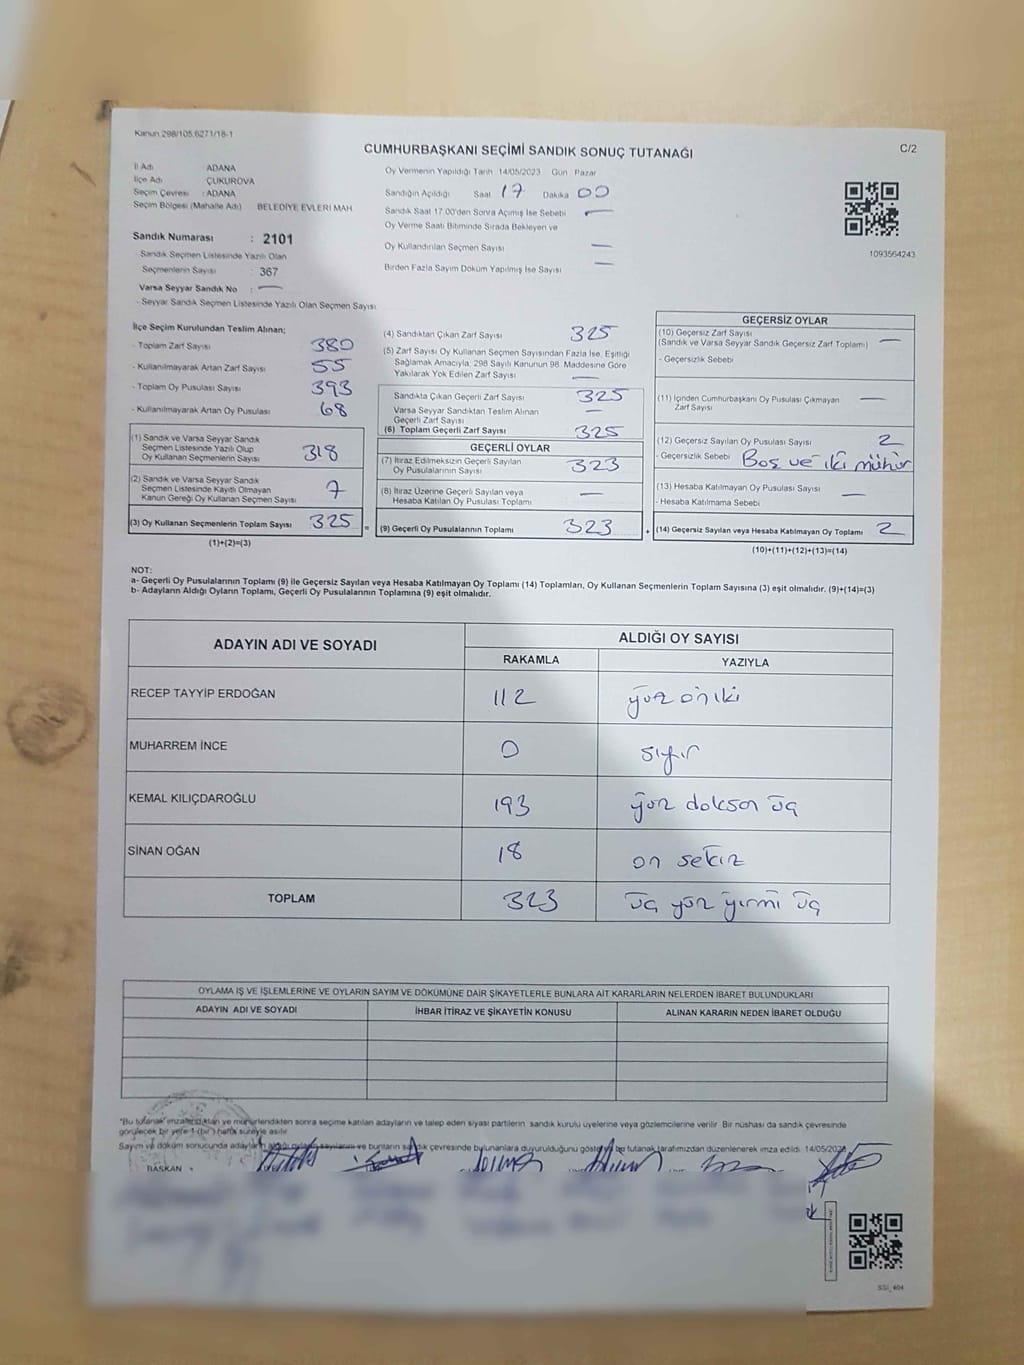 Kanun:298/105.6271/18-1
C/2
CUMHURBAŞKANI SEÇİMİ SANDIK SONUÇ TUTANAĞI
İl Adı : ADANA
İlçe Adı : ÇUKUROVA
Seçim Çevresi : ADANA
Seçim Bölgesi (Mahalle Adı) BELEDİYE EVLERİ MAH.
Sandık Numarası : 2101
- Sandık Seçmen Listesinde Yazılı Olan
Seçmenlerin Sayısı : 367
Varsa Seyyar Sandık No : —
- Seyyar Sandık Seçmen Listesinde Yazılı Olan Seçmen Sayısı
Oy Vermenin Yapıldığı Tarih 14/05/2023 Gün Pazar
Sandığın Açıldığı Saat 17 Dakika 00
Sandık Saat 17.00'den Sonra Açılmış İse Sebebi —
Oy Verme Saati Bitiminde Sırada Bekleyen ve
Oy Kullandırılan Seçmen Sayısı —
Birden Fazla Sayım Döküm Yapılmış İse Sayısı —
1093564243
İlçe Seçim Kurulundan Teslim Alınan;
- Toplam Zarf Sayısı 380
- Kullanılmayarak Artan Zarf Sayısı 55
- Toplam Oy Pusulası Sayısı 393
- Kullanılmayarak Artan Oy Pusulası 68
(1) Sandık ve Varsa Seyyar Sandık
Seçmen Listesinde Yazılı Olup
Oy Kullanan Seçmenlerin Sayısı 318
(2) Sandık ve Varsa Seyyar Sandık
Seçmen Listesinde Kayıtlı Olmayan
Kanun Gereği Oy Kullanan Seçmen Sayısı 7
(3) Oy Kullanan Seçmenlerin Toplam Sayısı 325 =
(1)+(2)=(3)
(4) Sandıktan Çıkan Zarf Sayısı 325
(5) Zarf Sayısı Oy Kullanan Seçmen Sayısından Fazla İse, Eşitliği
Sağlamak Amacıyla; 298 Sayılı Kanunun 98. Maddesine Göre
Yakılarak Yok Edilen Zarf Sayısı —
Sandıkta Çıkan Geçerli Zarf Sayısı 325
Varsa Seyyar Sandıktan Teslim Alınan
Geçerli Zarf Sayısı —
(6) Toplam Geçerli Zarf Sayısı 325
GEÇERLİ OYLAR
(7) İtiraz Edilmeksizin Geçerli Sayılan
Oy Pusulalarının Sayısı 323
(8) İtiraz Üzerine Geçerli Sayılan veya
Hesaba Katılan Oy Pusulası Toplamı —
(9) Geçerli Oy Pusulalarının Toplamı 323 +
GEÇERSİZ OYLAR
(10) Geçersiz Zarf Sayısı
(Sandık ve Varsa Seyyar Sandık Geçersiz Zarf Toplamı) —
- Geçersizlik Sebebi
(11) İçinden Cumhurbaşkanı Oy Pusulası Çıkmayan
Zarf Sayısı —
(12) Geçersiz Sayılan Oy Pusulası Sayısı 2
- Geçersizlik Sebebi Boş ve iki mühür
(13) Hesaba Katılmayan Oy Pusulası Sayısı —
- Hesaba Katılmama Sebebi
(14) Geçersiz Sayılan veya Hesaba Katılmayan Oy Toplamı 2
(10)+(11)+(12)+(13)=(14)
NOT:
a- Geçerli Oy Pusulalarının Toplamı (9) ile Geçersiz Sayılan veya Hesaba Katılmayan Oy Toplamı (14) Toplamları, Oy Kullanan Seçmenlerin Toplam Sayısına (3) eşit olmalıdır. (9)+(14)=(3)
b- Adayların Aldığı Oyların Toplamı, Geçerli Oy Pusulalarının Toplamına (9) eşit olmalıdır.
ADAYIN ADI VE SOYADI ALDIĞI OY SAYISI
RAKAMLA YAZIYLA
RECEP TAYYİP ERDOĞAN 112 yüz oniki
MUHARREM İNCE 0 sıfır
KEMAL KILIÇDAROĞLU 193 yüz doksan üç
SİNAN OĞAN 18 on sekiz
TOPLAM 323 üç yüz yirmi üç
OYLAMA İŞ VE İŞLEMLERİNE VE OYLARIN SAYIM VE DÖKÜMÜNE DAİR ŞİKAYETLERLE BUNLARA AİT KARARLARIN NELERDEN İBARET BULUNDUKLARI
ADAYIN ADI VE SOYADI İHBAR İTİRAZ VE ŞİKAYETİN KONUSU ALINAN KARARIN NEDEN İBARET OLDUĞU
"Bu tutanak" imzalandıktan ve mühürlendikten sonra seçime katılan adayların ve talep eden siyasi partilerin sandık kurulu üyelerine veya gözlemcilerine verilir. Bir nüshası da sandık çevresinde
görülecek bir yere 1 (bir) hafta süreyle asılır.
Sayım ve döküm sonucunda adayların aldığı oyların sayılarını ve bunların sandık çevresinde bulunanlara duyurulduğunu gösterir bu tutanak tarafımızdan düzenlenerek imza edildi. 14/05/2023
BAŞKAN